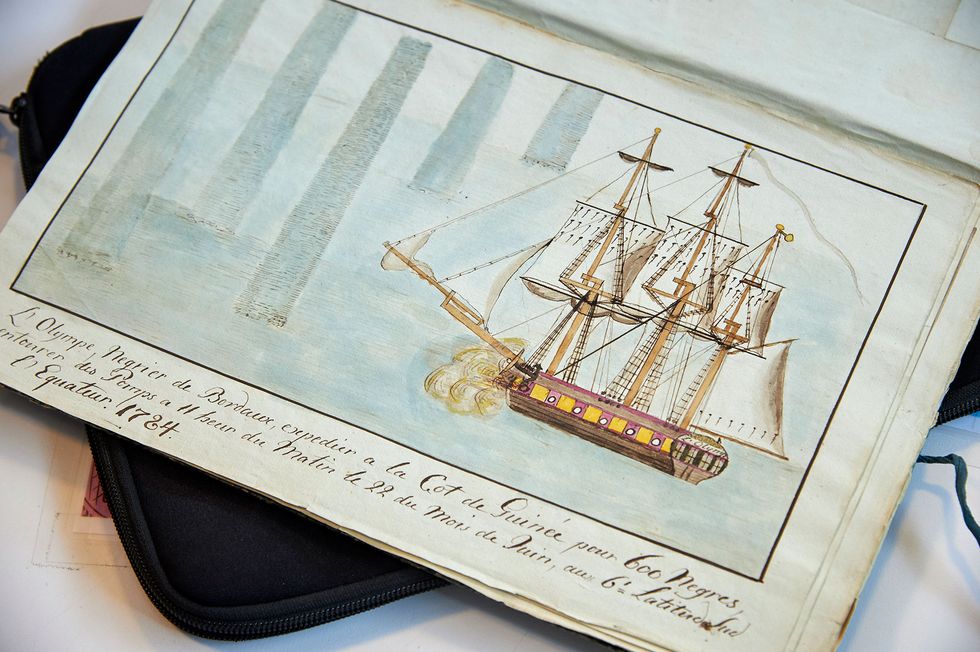 L'Olympe Negrier de Bordaux, expedier a la Cot de Guinée pour 600 Negres,
entourer des Pomps a 11 heur du Matin le 22 du Mois de Juin, aux 6: Latitud Sud
l'Equateur. 1724.